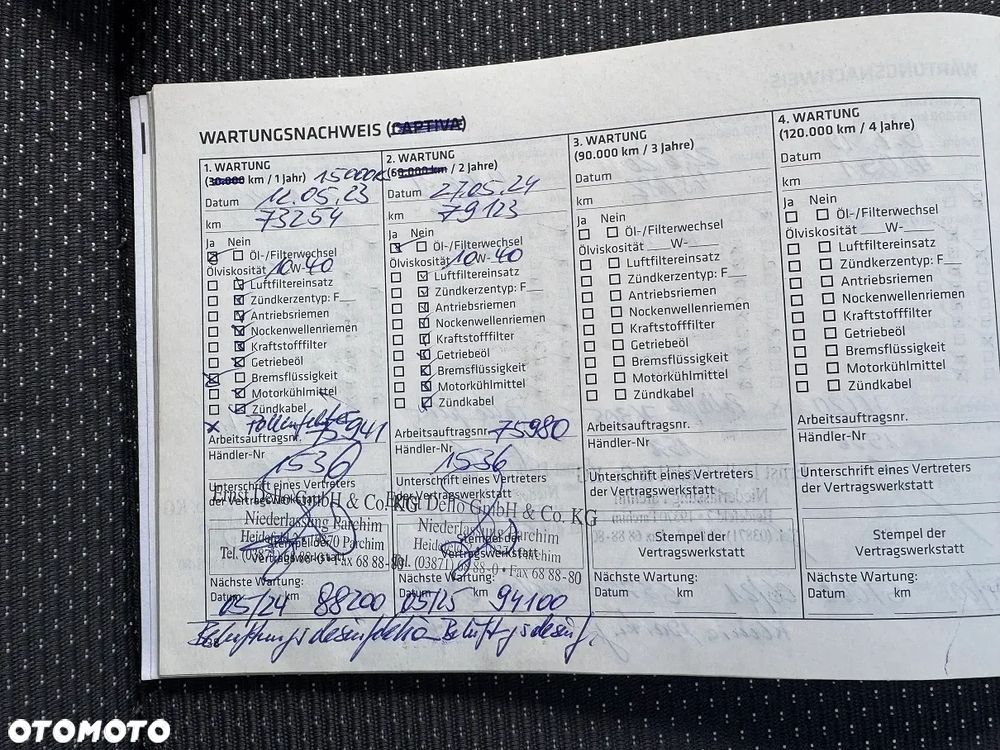 WARTUNGSNACHWEIS (CAPTIVA)
1. WARTUNG
(30.000 km / 1 Jahr) 15000K
Datum 12.05.23
km 73254
Ja Nein
Öl-/Filterwechsel
Ölviskosität 10W-40
Luftfiltereinsatz
Zündkerzentyp: F__
Antriebsriemen
Nockenwellenriemen
Kraftstofffilter
Getriebeöl
Bremsflüssigkeit
Motorkühlmittel
Zündkabel
x Pollenfilter
Arbeitsauftragsnr. 75941
Händler-Nr
1536
Unterschrift eines Vertreters
der Vertragswerkstatt
Ernst Dello GmbH & Co. KG
Niederlassung Parchim
Stempel der
Vertragswerkstatt
Tel. (03871) 68 88-0 • Fax 68 88-80
Nächste Wartung:
Datum km
05/24 88200
2. WARTUNG
(60.000 km / 2 Jahre)
Datum 27.05.24
km 79123
Ja Nein
Öl-/Filterwechsel
Ölviskosität 10W-40
Luftfiltereinsatz
Zündkerzentyp: F__
Antriebsriemen
Nockenwellenriemen
Kraftstofffilter
Getriebeöl
Bremsflüssigkeit
Motorkühlmittel
Zündkabel
Arbeitsauftragsnr. 75980
Händler-Nr
1536
Unterschrift eines Vertreters
der Vertragswerkstatt
Ernst Dello GmbH & Co. KG
Niederlassung Parchim
Stempel der
Vertragswerkstatt
Tel. (03871) 68 88-0 • Fax 68 88-80
Nächste Wartung:
Datum km
05/25 94100
3. WARTUNG
(90.000 km / 3 Jahre)
Datum
km
Ja Nein
Öl-/Filterwechsel
Ölviskosität ___W-___
Luftfiltereinsatz
Zündkerzentyp: F__
Antriebsriemen
Nockenwellenriemen
Kraftstofffilter
Getriebeöl
Bremsflüssigkeit
Motorkühlmittel
Zündkabel
Arbeitsauftragsnr.
Händler-Nr
Unterschrift eines Vertreters
der Vertragswerkstatt
Stempel der
Vertragswerkstatt
Nächste Wartung:
Datum km
4. WARTUNG
(120.000 km / 4 Jahre)
Datum
km
Ja Nein
Öl-/Filterwechsel
Ölviskosität ___W-___
Luftfiltereinsatz
Zündkerzentyp: F__
Antriebsriemen
Nockenwellenriemen
Kraftstofffilter
Getriebeöl
Bremsflüssigkeit
Motorkühlmittel
Zündkabel
Arbeitsauftragsnr.
Händler-Nr
Unterschrift eines Vertreters
der Vertragswerkstatt
Stempel der
Vertragswerkstatt
Nächste Wartung:
Datum km
OTOMOTO